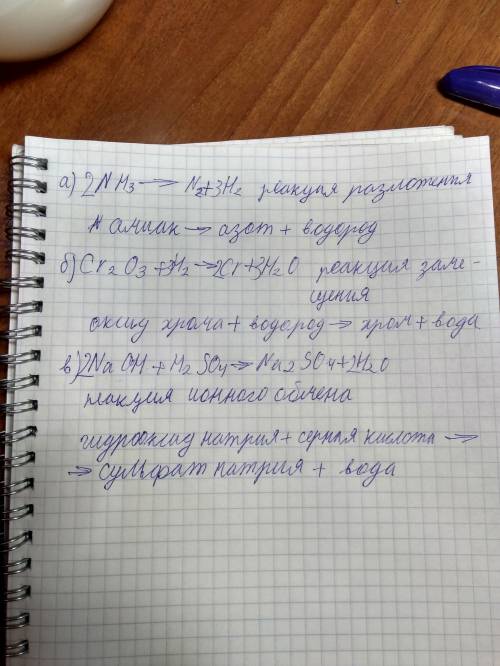 а) 2NH3 → N2+3H2 реакция разложения
Амиак → азот + водород
б) Cr2O3 + 3H2 → 2Cr+3H2O реакция заме-
щения
оксид хрома + водород → хром + вода
в) 2NaOH + H2SO4 → Na2SO4+2H2O
реакция ионного обмена
гидрооксид натрия + серная кислота →
→ сульфат натрия + вода